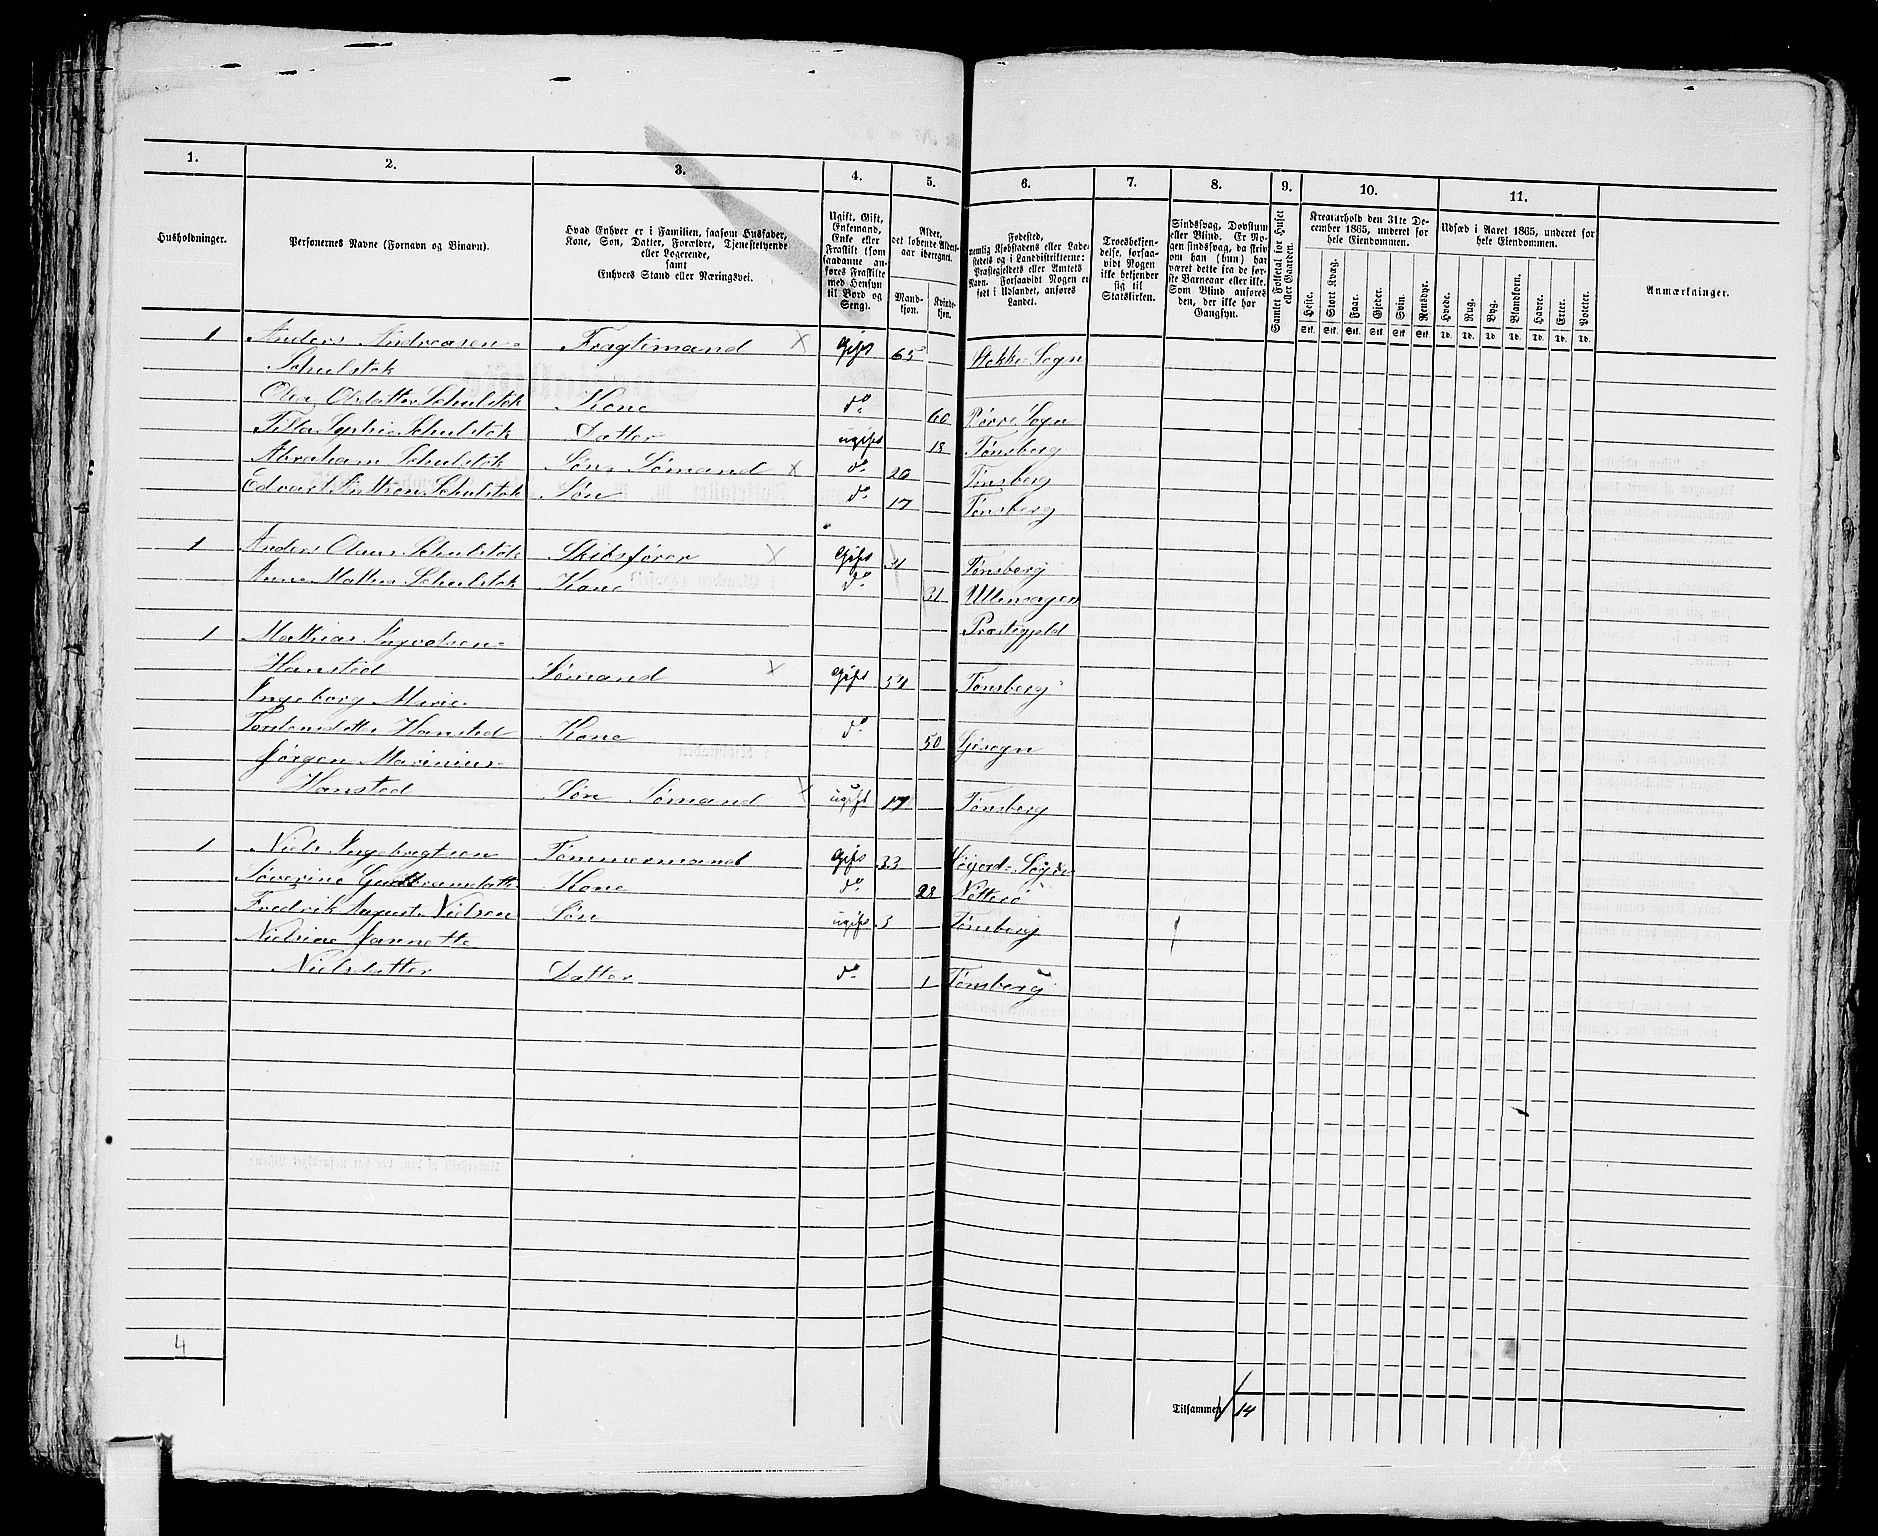 1. 2. 3. 4. 5. 6. 7. 8. 9. 10. 11.
Husholdninger.
Personernes Navne (Fornavn og Vinavn).
Hvad Enhver er i Familien, saasom Husfader,
Kone, Søn, Datter, Forældre, Tjenestetyende
eller Logerende,
samt
Enhvers Stand eller Næringsvei.
Ugift, Gift,
Enkemand,
Enke eller
Fraskilt (som
saadanne an-
føres Fraskilte
med Hensyn
til Bord og
Seng).
Alder,
det løbende Alders-
aar iberegnet.
Mand-
kjøn.
Kvinde-
kjøn.
Fødested,
nemlig Kjøbstadens eller Lade-
stedets og i Landdistrikterne:
Præstegjeldets eller Amtets
Navn. Forsaavidt Nogen er
født i Udlandet, anføres
Landet.
Troesbekjen-
delse, forsaa-
vidt Nogen
ikke bekjender
sig til
Statskirken.
Sindssvag, Døvstum
eller Blind. Er No-
gen sindssvag, da skriv
om han (hun) har
været dette fra de før-
ste Barneaar eller ikke.
Som Blind anføres
den, der ikke har
Gangsyn.
Samlet Folketal for Huset
eller Gaarden.
Kreaturhold den 31te De-
cember 1865, underet for
hele Eiendommen.
Heste. Stort Kvæg. Faar. Gjeder. Svin. Rensdyr.
Stk. Stk. Stk. Stk. Stk. Stk.
Udsæd i Aaret 1865, underet for
hele Eiendommen.
Hvede. Rug. Byg. Blandkorn. Havre. Erter. Poteter.
Td. Td. Td. Td. Td. Td. Td.
Anmærkninger.
1 Anders Andreasen- Fragtimand × Gift 65 Stokke Sogn
Schulstok
Olea Olsdatter Schulstok Kone do 60 Borre Sogn
Tilla Sophie Schulstok Datter ugift 18 Tønsberg
Abraham Schulstok Søn Sømand × do 20 Tønsberg
Edvart Antsen Schulstok Søn do 17 Tønsberg
1 Anders Olaus Schulstok Skibsfører × Gift 31 Tønsberg
Anne Mathea Schulstok Kone do 31 Ullensagers
1 Mathias Præstegjeld
Hansted Sømand × Gift 54 Tønsberg
Ingeborg Marie
Tordensdatter Hansted Kone do 50
Jørgen Marinius-
Hansted Søn Sømand × ugift 17 Tønsberg
1 Niels Ingebregtsen Tømmermand Gift 33 Sogn
Søverine Gulbransdatter Kone do 28 Nøtterø
Fredrik August Nielsen Søn ugift 3 Tønsberg
Nielsine Jannette
Nielsdatter Datter do 1 Tønsberg
4
Tilsammen 14